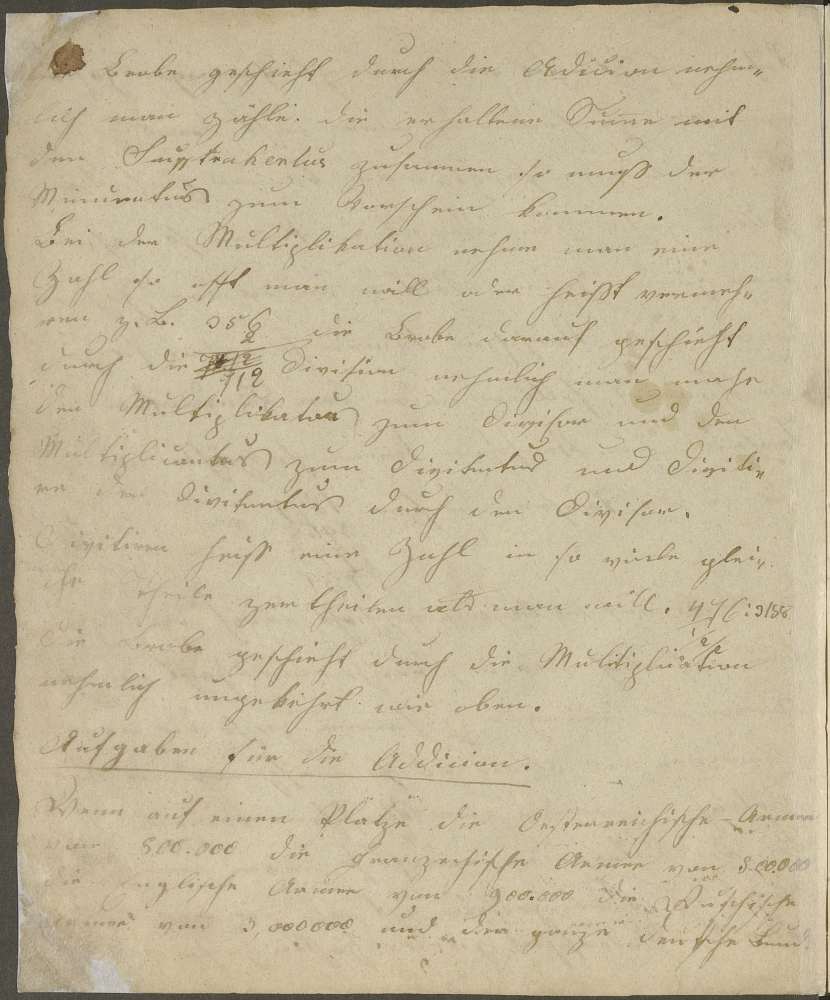 Brobe geschieht durch die Adicion nehm„
lich man zähle. die erhaltene Sume mit
den Supstrahentus zusammen so muß der
Minuentus zum Vorschein kommen.
Bei der Multiplikation nehme man eine
Zahl so offt man will oder heißt vermeh„
ren z. B. 356 die Brobe darauf geschieht
2
durch die Division nehmlich man mache
712
den Multiplikator zum Divisor und den
Multiplicantus zum Divitentus und Diviti„
re den Divitentus durch den Divisor.
Divitiren heiss eine Zahl in so viele glei„
che theile zertheilen als man will.
Die Brobe geschieht durch die Multiplication
nehmlich umgekehrt wie oben.
Aufgaben für die Addicion.
Wenn auf einen Platze die Oesterreichische Armee
von 800.000 die französische Armee von 800.000
die Englische Armee von 900.000 die Rußische
Armee von 3,000000 und der ganze deutsche Bun